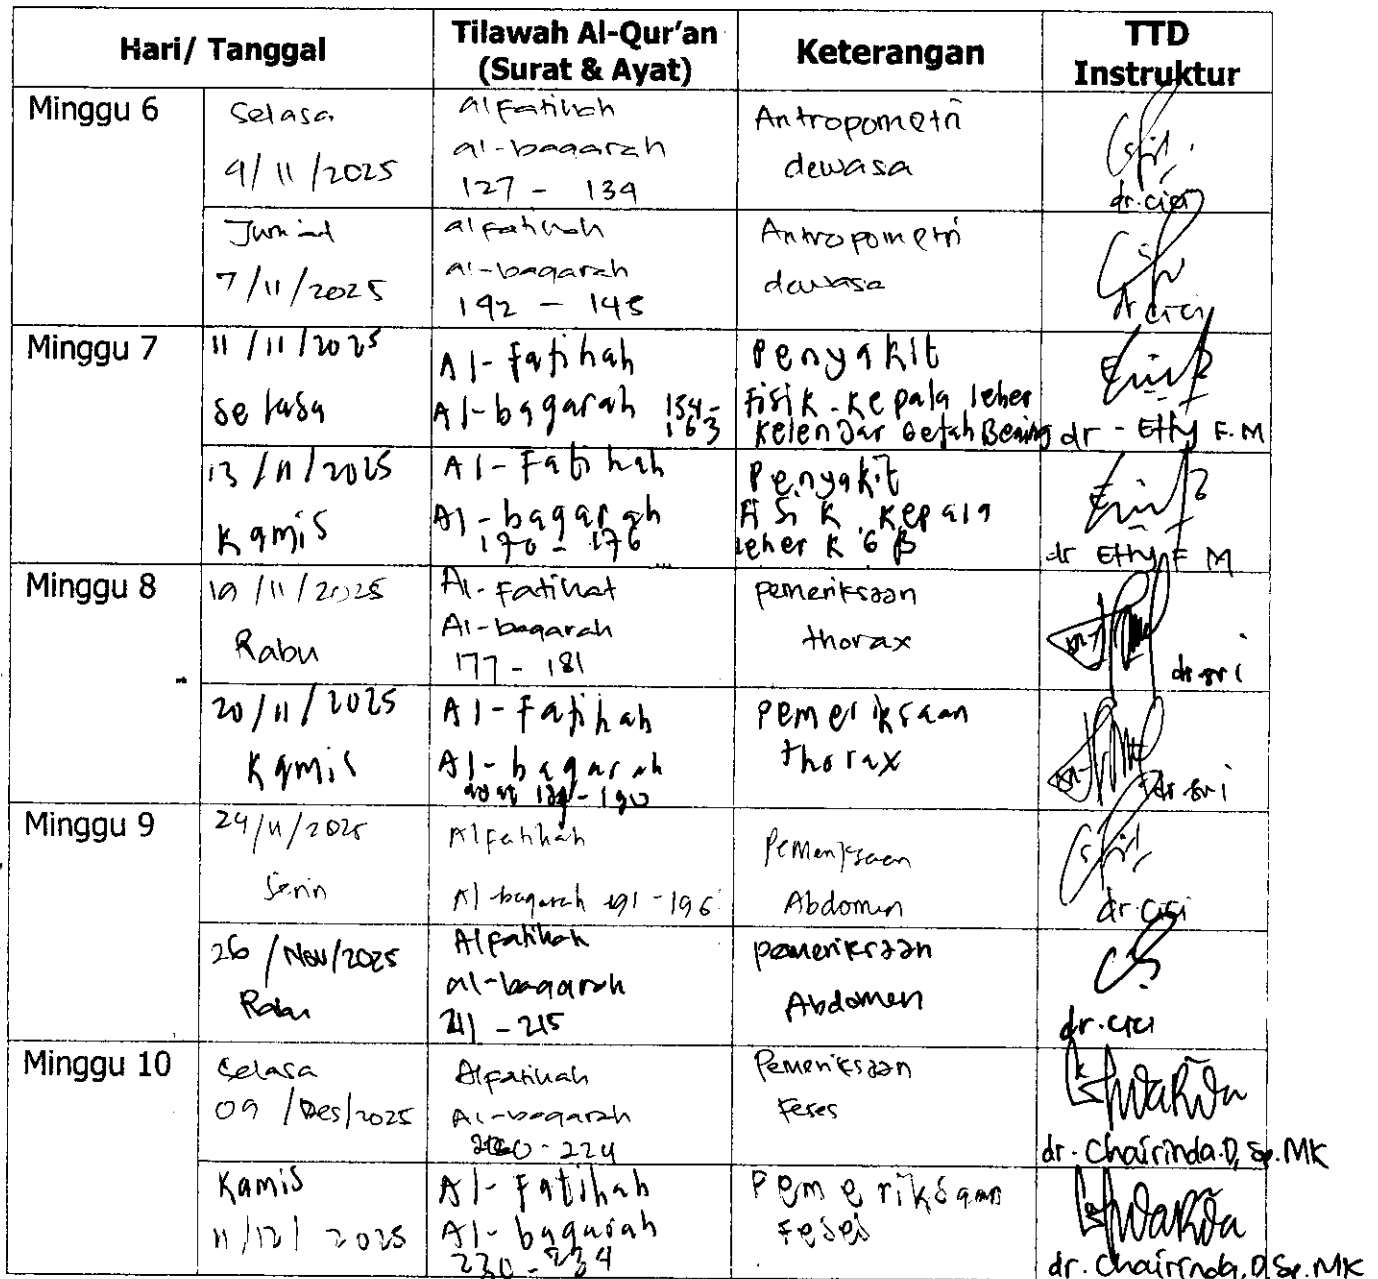 Hari/ Tanggal
Tilawah Al-Qur'an
(Surat & Ayat)
Keterangan
TTD
Instruktur
Minggu 6
Selasa
4/11/2025
alfatihah
al-baqarah
127 - 134
Antropometri
dewasa
dr. cici
Jum'at
7/11/2025
alfatihah
al-baqarah
142 - 145
Antropometri
dewasa
dr cici
Minggu 7
11/11/2025
Selasa
Al-Fatihah
Al-baqarah 154-
163
Penyakit
Fisik-Kepala leher
Kelenjar Getah Bening
dr - Ethy F.M
13/11/2025
Kamis
Al-Fatihah
Al-baqarah
170 - 176
Penyakit
Fisik Kepala
leher KGB
dr Ethy F M
Minggu 8
19/11/2025
Rabu
Al-Fatihat
Al-baqarah
177 - 181
pemeriksaan
thorax
dr sri
20/11/2025
Kamis
Al-Fatihah
Al-baqarah
ayat - 190
Pemeriksaan
thorax
dr sri
Minggu 9
24/11/2025
Senin
Alfatihah
Al-baqarah 191-196
Pemeriksaan
Abdomen
dr. cici
26/Nov/2025
Rabu
Alfatihah
al-baqarah
211 - 215
pemeriksaan
Abdomen
dr. cici
Minggu 10
Selasa
09/Des/2025
Alfatihah
Al-baqarah
220 - 224
Pemeriksaan
Feses
dr. Chairinda.D, Sp.MK
Kamis
11/12/2025
Al-Fatihah
Al-baqarah
230 - 234
Pemeriksaan
Feses
dr. Chairinda.D, Sp.MK